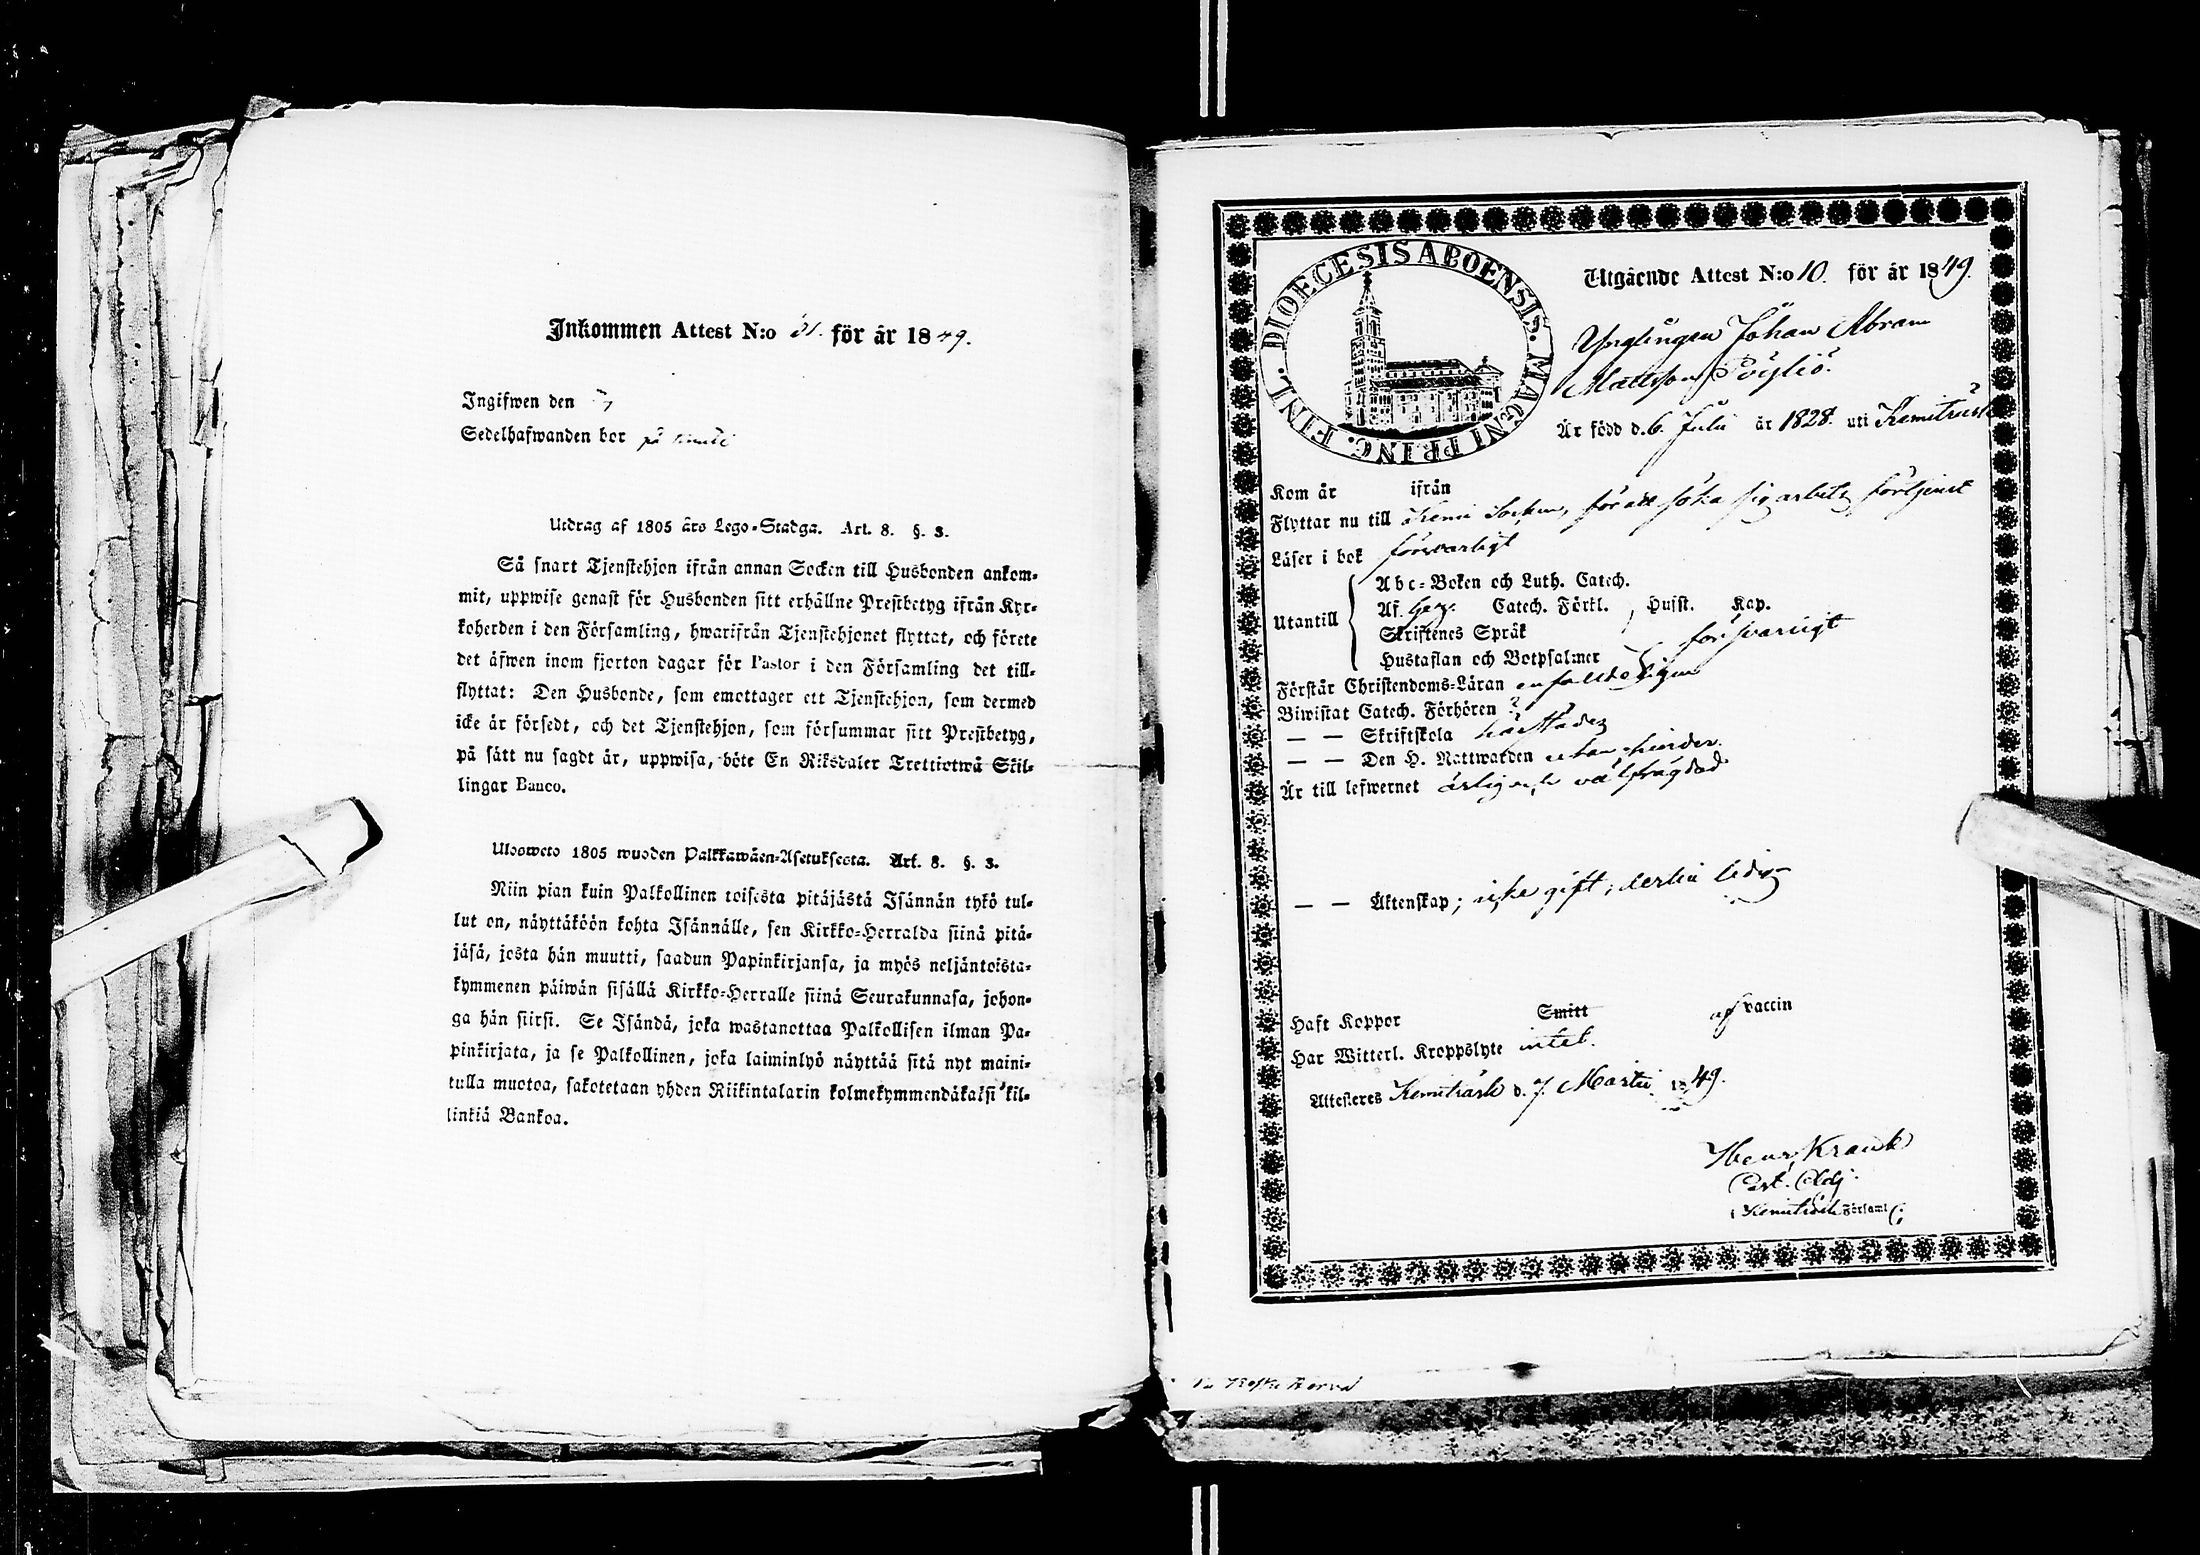 Inkommen Attest N:o 31. för år 1849.
Ingifwen den
Sedelhafwanden bor på
Utdrag af 1805 års Lego-Stadga. Art. 8. §. 3.
Så snart Tjenstehjon ifrån annan Socken till Husbonden ankom-
mit, uppwise genast för Husbonden sitt erhållne Prestbetyg ifrån Kyr-
koherden i den Församling, hwarifrån Tjenstehjonet flyttat, och förete
det äfwen inom fjorton dagar för Pastor i den Församling det till-
flyttat: Den Husbonde, som emottager ett Tjenstehjon, som dermed
icke är försedt, och det Tjenstehjon, som försummar sitt Prestbetyg,
på sätt nu sagdt är, uppwisa, böte En Riksdaler Trettiotwå Skil-
lingar Banco.
Ulosweto 1805 wuoden Palkkawäen-Asetuksesta. Art. 8. §. 3.
Niin pian kuin Palkollinen toisesta pitäjästä Isännän tykö tul-
lut on, näyttäköön kohta Isännälle, sen Kirkko-Herralda siinä pitä-
jäsä, josta hän muutti, saadun Papinkirjansa, ja myös neljäntoista-
kymmenen päiwän sisällä Kirkko-Herralle siinä Seurakunnasa, johon-
ga hän siirsi. Se Isändä, joka wastanottaa Palkollisen ilman Pa-
pinkirjata, ja se Palkollinen, joka laiminlyö näyttää sitä nyt maini-
tulla muotoa, sakotetaan yhden Riikintalarin kolmekymmendäkaksi kil-
linkiä Bankoa.
DIOECESIS ABOENSIS. MAGNI PRINC. FINL.
Utgående Attest N:o 10. för år 1849.
Ynglingen Johan Abram
Mattsson Pöyliö.
Är född d. 6. Julii år 1828. uti Kemiträsk
Kom år ifrån
Flyttar nu till Kemi Socken, för att söka sig arbets förtjenst
Läser i bok försvarligt
Utantill
Abc-Boken och Luth. Catech.
Af Catech. Förkl. Husst. Kap.
Skriftenes Språk försvarligt
Hustaflan och Botpsalmer
Förstår Christendoms-Läran enfaldeligen
Biwistat Catech. Förhören
— — Skriftskola härstädes
— — Den H. Nattwarden utan hinder.
Är till lefwernet ärlig och välfrägdad
— — Äktenskap; icke gift; dertill ledig
Haft Koppor Smitt af vaccin
Har Witterl. Kroppslyte intet.
Attesteres Kemiträsk d. 7. Martii 1849.
Henr. Krank
Past. Adj.
i Kemiträsk Församl.